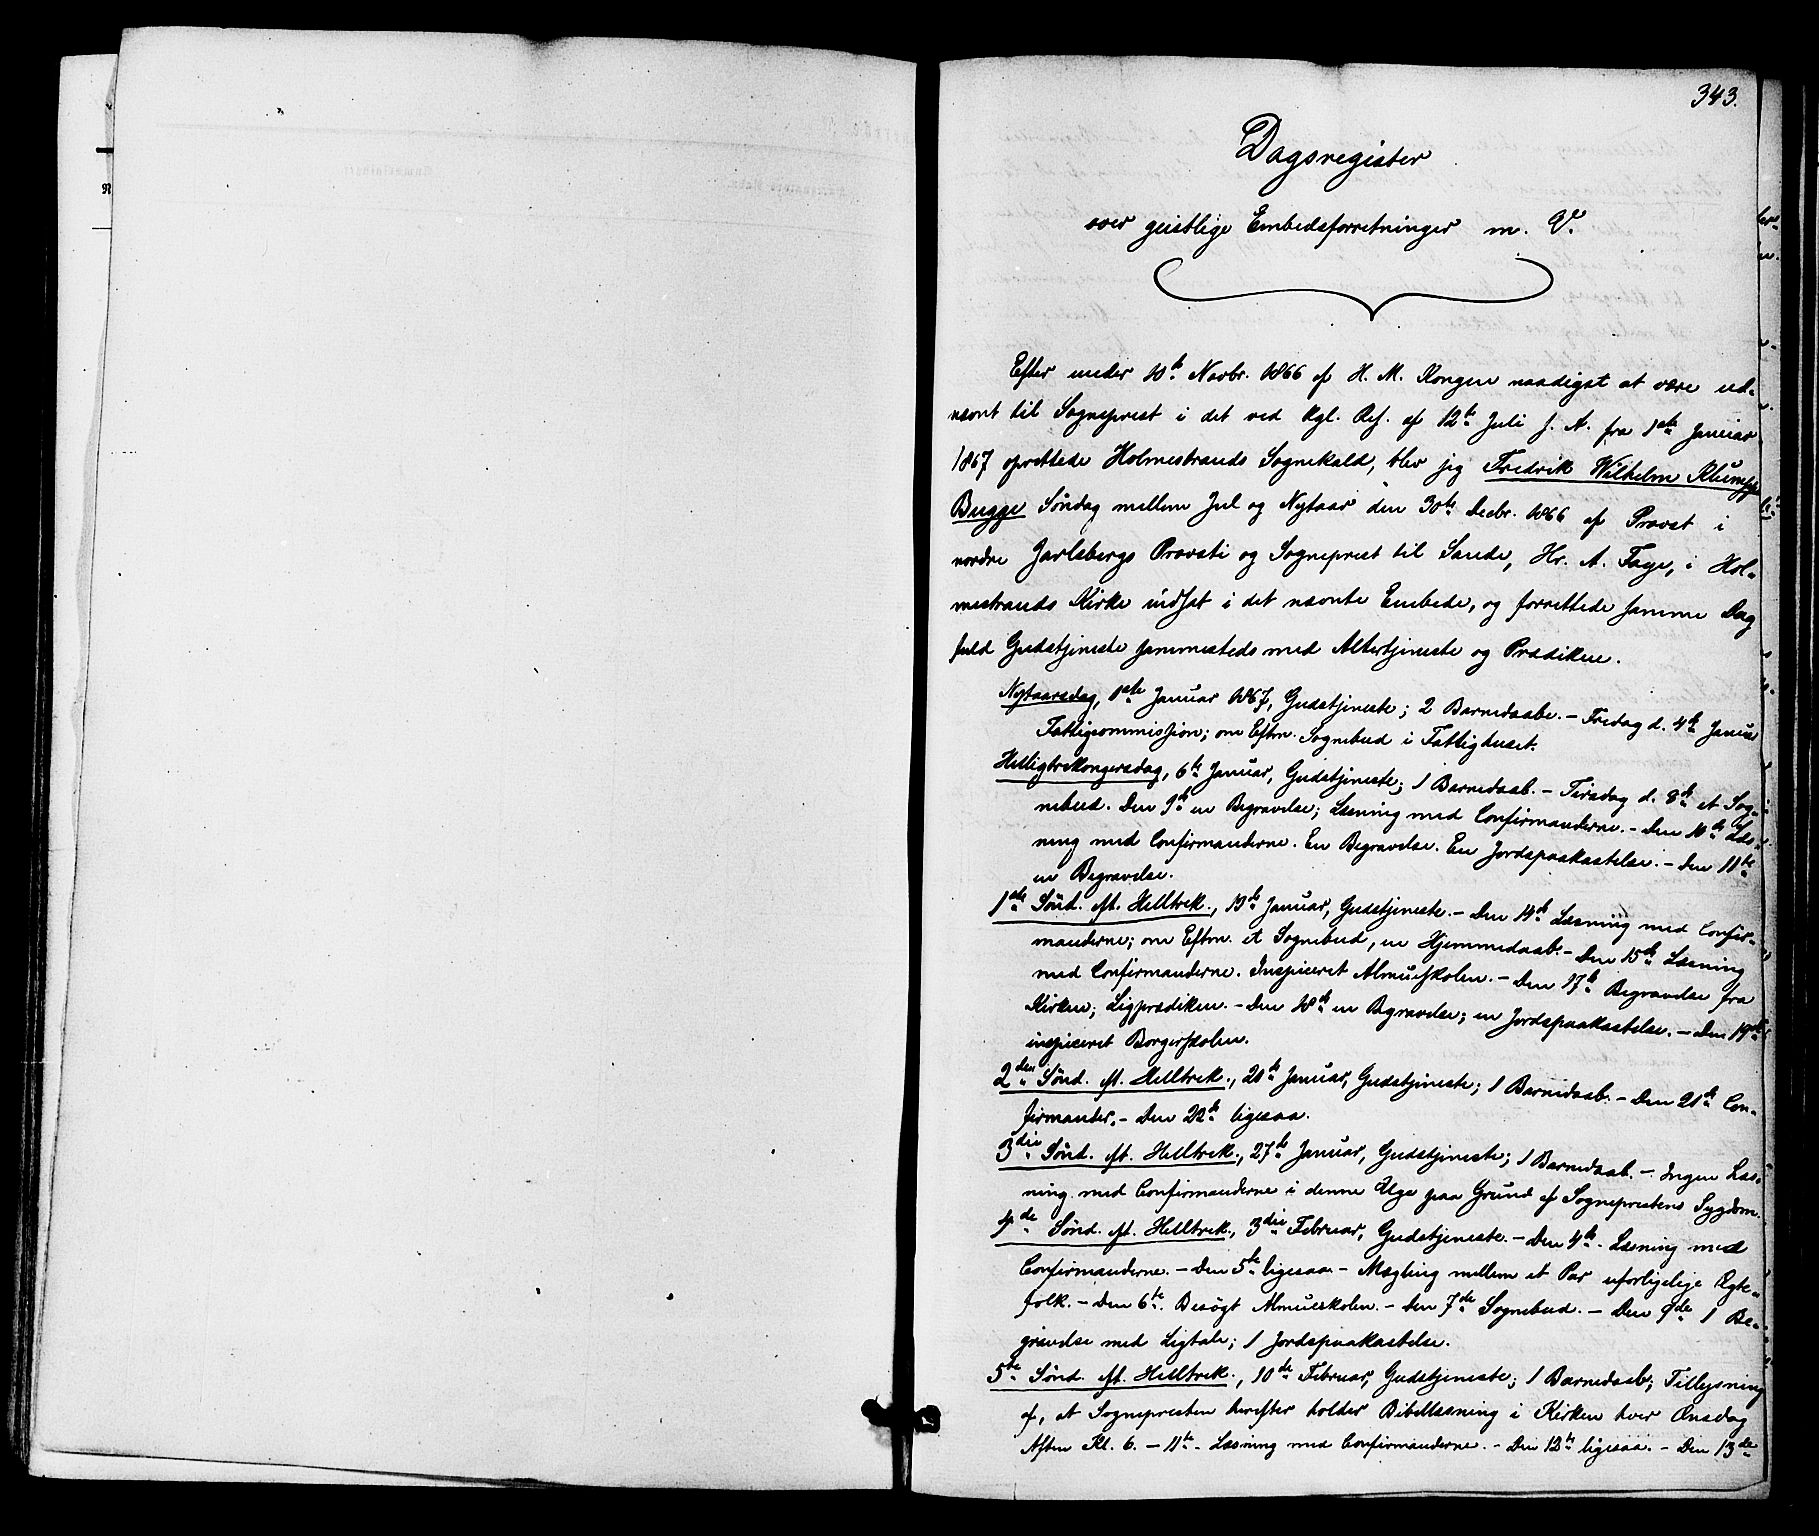 343.
Dagsregister
over geistlige Embedsforretninger m. V.
Efter under 10de Novbr. 1866 af H. M. Kongen naadigst at være ud-
nævnt til Sogneprest i det ved kgl. Res. af 12te Juli s. A. fra 1ste Januar
1867 oprettede Holmestrands Sognekald, blev jeg Fredrik Wilhelm Klumpp
Bugge Søndag mellem Jul og Nytaar den 30te Decbr. 1866 af Provst i
nordre Jarlsbergs Provsti og Sogneprest til Sande, Hr. A. Faye, i Hol-
mestrands Kirke indsat i det nævnte Embede, og forrettede samme Dag
fuld Gudstjeneste sammesteds med Altertjeneste og Prædiken.
Nytaarsdag, 1ste Januar 1867, Gudstjeneste; 2 Barnedaabe. – Fredag d. 4de Januar
Fattigcommission; om Eftm. Sognebud i Fattighuset.
Helligtrekongersdag, 6te Januar, Gudstjeneste; 1 Barnedaab. – Tirsdag d. 8de et Sog-
nebud. Den 9de en Begravelse; Læsning med Confirmanderne. – Den 10de Læs-
ning med Confirmanderne. En Begravelse. En Jordspaakastelse. – Den 11te
en Begravelse.
1ste Sønd. eft. Helltrek., 13de Januar, Gudstjeneste. – Den 14de Læsning med Confir-
manderne; om Eftm. et Sognebud, en Hjemmedaab. – Den 15de Læsning
med Confirmanderne. Inspiceret Almueskolen. – Den 17de Begravelse fra
Kirken; Ligprædiken. – Den 18de en Begravelse; en Jordspaakastelse. – Den 19de
inspiceret Borgerskolen.
2den Sønd. eft. Helltrek., 20de Januar, Gudstjeneste; 1 Barnedaab. – Den 21de Con-
firmander. – Den 22de ligesaa.
3die Sønd. eft. Helltrek., 27de Januar, Gudstjeneste; 1 Barnedaab. – Ingen Læs-
ning med Confirmanderne i denne Uge paa Grund af Sogneprestens Sygdom.
4de Sønd. eft. Helltrek., 3die Februar, Gudstjeneste. – Den 4de Læsning med
Confirmanderne. – Den 5te ligesaa – Mægling mellem et Par uforligelige Ægte-
folk. – Den 6te Besøgt Almueskolen. – Den 7de Sognebud. – Den 9de 1 Be-
gravelse med Ligtale; 1 Jordspaakastelse.
5te Sønd. eft. Helltrek., 10de Februar, Gudstjeneste; 1 Barnedaab; Tillysning
af, at Sognepresten herefter holder Bibellæsning i Kirken hver Onsdag
Aften Kl. 6. – 11te Læsning med Confirmanderne. – Den 12te ligesaa. – Den 13de